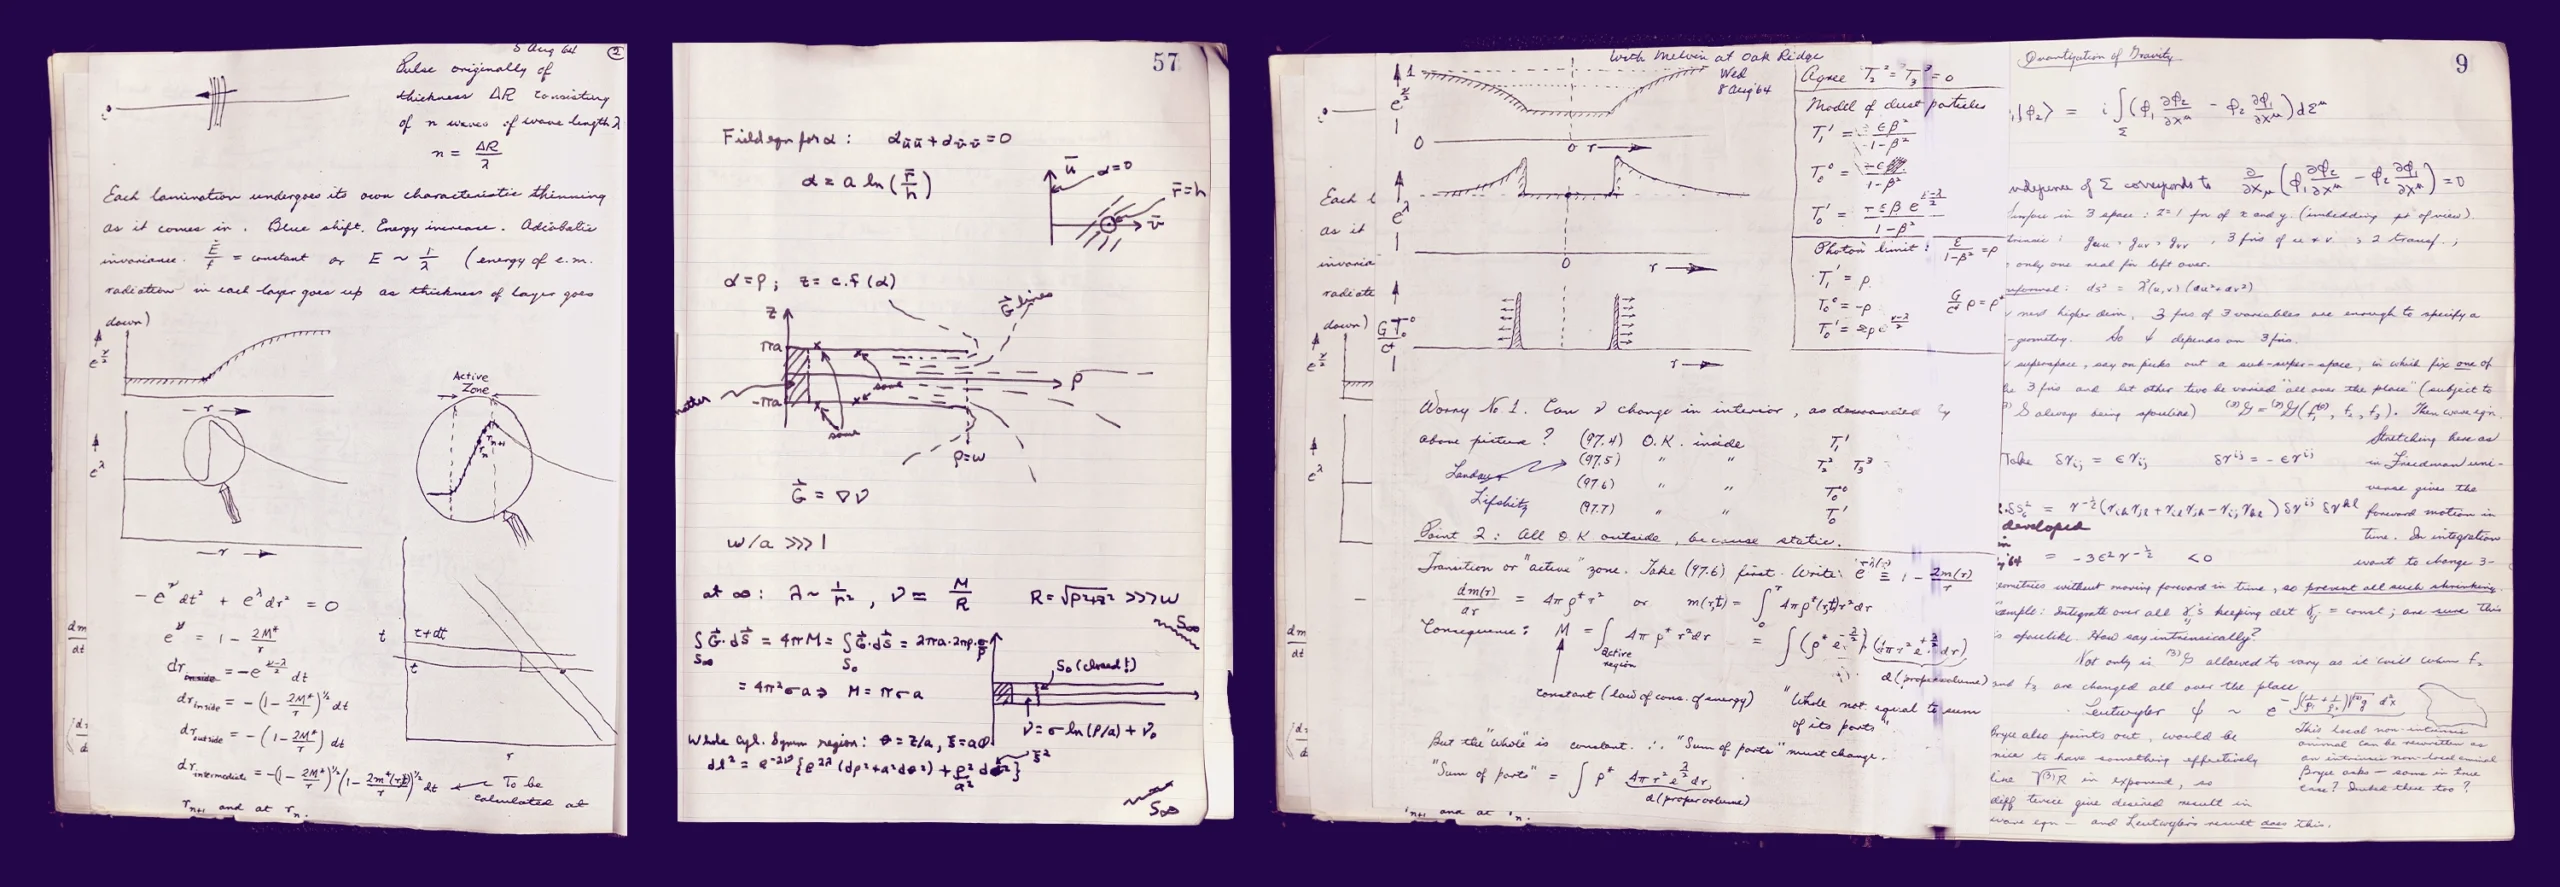 5 Aug 64
2
Pulse originally of
thickness ΔR consisting
of n waves of wave length λ
n = ΔR/λ
Each lamination undergoes its own characteristic thinning
as it comes in. Blue shift. Energy increase. Adiabatic
invariance. E/f = constant or E ~ 1/λ (energy of e.m.
radiation in each layer goes up as thickness of layer goes
down)
e^{ν/2}
r
Active
Zone
r_{n+1}
r_n
e^λ
r
-e^ν dt² + e^λ dr² = 0
e^ν = 1 - 2M*/r
dr_{inside} = -e^{(ν-λ)/2} dt
dr_{inside} = -(1 - 2M*/r)^{1/2} dt
dr_{outside} = -(1 - 2M*/r) dt
dr_{intermediate} = -(1 - 2M*/r)^{1/2} (1 - 2m*(r,t)/r)^{1/2} dt ← To be
calculated at
r_{n+1} and at r_n.
t
t+dt
t
r
dm/dt
57
Field eqn for α: α_{ūū} + α_{v̄v̄} = 0
α = a ln(r̄/h)
ū
α=0
r̄=h
v̄
α = ρ; z = c.f(α)
G⃗ lines
z
πa
-πa
same
same
ρ
ρ=w
G⃗ = ∇ν
w/a >>> 1
at ∞: λ ~ 1/R², ν = M/R R = √(ρ²+z²) >>> w
S∞
∫_{S∞} G⃗·dS⃗ = 4πM = ∫_{S₀} G⃗·dS⃗ = 2πa·2πρ·σ/ρ
= 4π²σa ⇒ M = πσa
S₀ (closed!)
ν = σ ln(ρ/a) + ν₀
Whole cyl. symm region: θ = z/a, ξ = aφ
dl² = e^{-2ν} {e^{2λ} (dρ² + a²dθ²) + ρ²/a² dξ²}
S∞
With Melvin at Oak Ridge
Wed
8 Aug 64
1
e^{ν/2}
0
0 r
e^λ
0
r
G T₀⁰/c⁴
r
Agree T₂² = T₃³ = 0
Model of dust particles
T₁¹ = εβ²/(1-β²)
T₀⁰ = -ε/(1-β²)
T₀¹ = ±εβ e^{(ν-λ)/2}/(1-β²)
Photon limit: ε/(1-β²) = ρ
T₁¹ = ρ
T₀⁰ = -ρ
T₀¹ = ±ρ e^{(ν-λ)/2}
G/c⁴ ρ = ρ*
Worry No. 1. Can ν change in interior, as demanded by
above picture? (97.4) O.K. inside T₁¹
Landau (97.5) " " T₂² T₃³
Lifshitz (97.6) " " T₀⁰
(97.7) " " T₀¹
Point 2: All O.K outside, because static.
Transition or "active" zone. Take (97.6) first. Write: e^{-λ(r)} ≡ 1 - 2m(r)/r
dm(r)/dr = 4πρ*r² or m(r,t) = ∫₀^r 4πρ*(r,t)r²dr
Consequence: M = ∫_{active region} 4πρ*r²dr = ∫(ρ* e^{-λ/2}) (4πr² e^{+λ/2} dr)
d(proper volume)
constant (law of cons. of energy) "Whole not equal to sum
of its parts"
But the "whole" is constant. ∴ "Sum of parts" must change.
"Sum of parts" = ∫ρ* 4πr² e^{λ/2} dr
d(proper volume)
Each l
as it
invaria
radiate
down)
e^{ν/2}
e^λ
dm/dt
r_{n+1} and at r_n.
Quantization of Gravity
9
|φ₂⟩ = i∫_Σ (φ₁ ∂φ₂/∂x^μ - φ₂ ∂φ₁/∂x^μ) dΣ^μ
independence of Σ corresponds to ∂/∂x_μ (φ₁ ∂φ₂/∂x^μ - φ₂ ∂φ₁/∂x^μ) = 0
in 3 space: z=1 fn of x and y. (imbedding pt of view).
g_{uu}, g_{uv}, g_{vv}, 3 fns of u + v; 2 transf.;
only one real fn left over.
conformal: ds² = λ²(u,v) (du²+dv²)
next higher dim, 3 fns of 3 variables are enough to specify a
-geometry. So ψ depends on 3 fns.
superspace, say on picks out a sub-super-space, in which fix one of
3 fns and let other two be varied "all over the place" (subject to
always being spacelike) ⁽³⁾G = ⁽³⁾G(f₁, f₂, f₃). Then wave eqn.
Stretching here as
Take δγ_{ij} = εγ_{ij} δγ^{ij} = -εγ^{ij} in Friedman uni-
verse gives the
= γ^{-1/2} (γ_{ik}γ_{jl} + γ_{il}γ_{jk} - γ_{ij}γ_{kl}) δγ^{ij} δγ^{kl} forward motion in
developed
time. In integration
= -3ε²γ^{-1/2} < 0
want to change 3-
geometries without moving forward in time, so prevent all such shrinking.
Example: Integrate over all γ_{ij}'s keeping det γ_{ij} = const; are sure this
is spacelike. How say intrinsically?
Not only is ⁽³⁾G allowed to vary as it will when f₂
and f₃ are changed all over the place
Leutwyler ψ ~ e
Bryce also points out, would be
nice to have something effectively
like √⁽³⁾R in exponent, so
diff twice give desired result in
wave eqn — and Leutwyler's result does this.
This local non-intrinsic
animal can be rewritten as
an intrinsic non-local animal
Bryce asks — same in true
case? Inded there too?